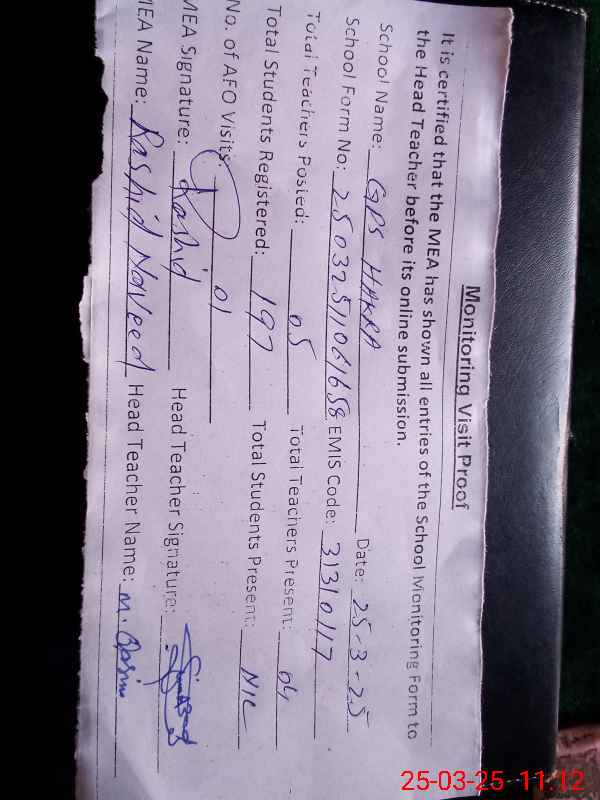 Monitoring Visit Proof
It is certified that the MEA has shown all entries of the School Monitoring Form to
the Head Teacher before its online submission.
School Name: GPS HAKRA Date: 25-3-25
School Form No: 25032511061658 EMIS Code: 31310117
Total Teachers Posted: 05 Total Teachers Present: 04
Total Students Registered: 197 Total Students Present: NIL
No. of AEO Visits: 01
MEA Signature: Rashid Head Teacher Signature:
MEA Name: Rashid Naveed Head Teacher Name: M.
25-03-25 11:12